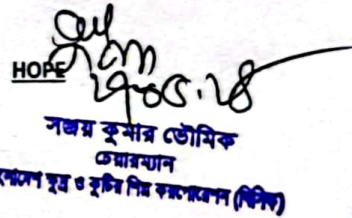 HOPE
সঞ্জয় কুমার ভৌমিক
চেয়ারম্যান
ক্ষুদ্র ও কুটির শিল্প করপোরেশন (বিসিক)